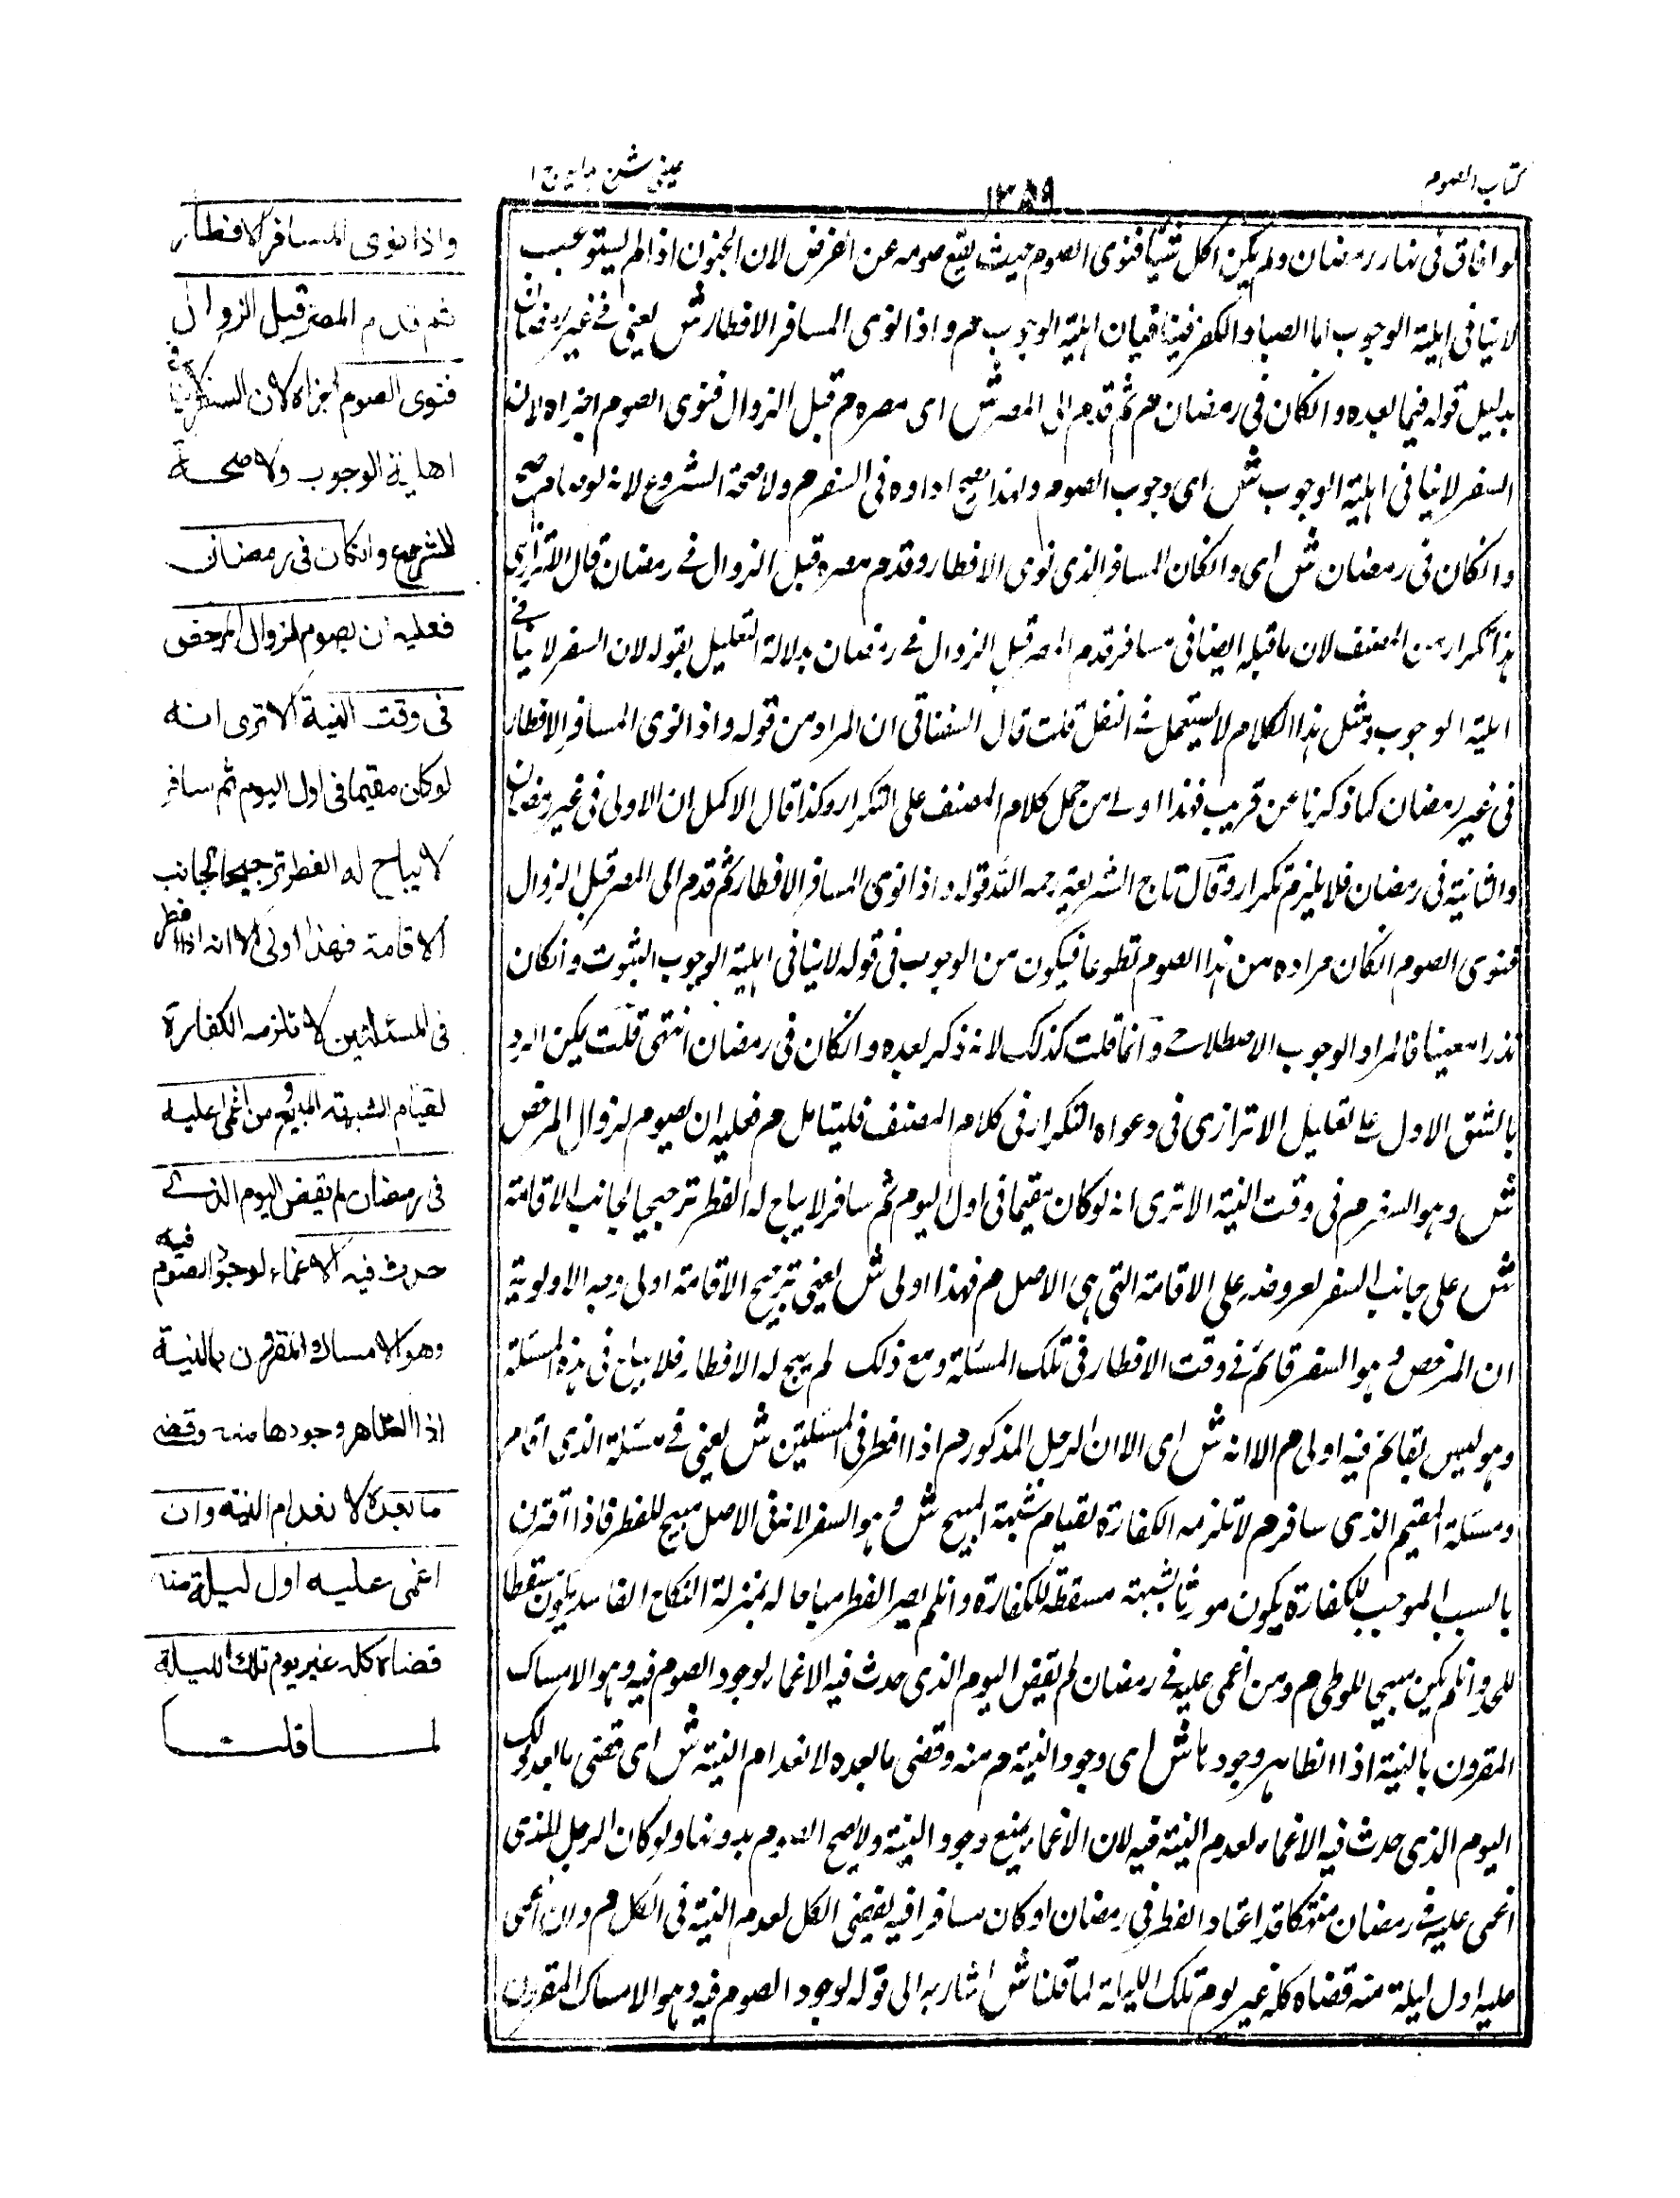 كتاب الصوم
١٣٥٩
عينى شرح هداية ج ١
لو افاق فى نهار رمضان ولم يكن اكل شيئا فنوى الصوم حيث يقع صومه عن الفرض لان الجنون اذا لم يستوعب
لا ينافى اهلية الوجوب اما الصبا والكفر فينافيان اهلية الوجوب م واذا نوى المسافر الافطار ش يعنى فى غير رمضان
بدليل قوله فيما بعده وانكان فى رمضان م ثم قدم الى المصر ش اى مصره م قبل الزوال فنوى الصوم اجزاه لان
السفر لا ينافى اهلية الوجوب ش اى وجوب الصوم ولهذا صح اداوه فى السفر م ولا صحة الشروع لانه لو صام صح
وانكان فى رمضان ش اى وانكان المسافر الذى نوى الافطار وقدم مصره قبل الزوال فى رمضان قال الاترازى
هذا تكرار من المصنف لان ما قبله ايضا فى مسافر قدم المصر قبل الزوال فى رمضان بدلالة التعليل بقوله لان السفر لا ينافى
اهلية الوجوب ومثل هذا الكلام لا يستعمل فى النفل قلت قال السغناقى ان المراد من قوله واذا نوى المسافر الافطار
فى غير رمضان كما ذكرنا عن قريب فهذا اولى من حمل كلام المصنف على التكرار وكذا قال الاكمل ان الاولى فى غير رمضان
والثانية فى رمضان فلا يلزم تكرار وقال تاج الشريعة رحمه الله قوله واذا نوى المسافر الافطار ثم قدم الى المصر قبل الزوال
فنوى الصوم انكان مراده من هذا الصوم تطوعا فيكون من الوجوب فى قوله لا ينافى اهلية الوجوب الثبوت وانكان
نذرا معينا فالمراد الوجوب الاصطلاحى وانما قلت كذلك لانه ذكر بعده وانكان فى رمضان انتهى قلت يمكن الرد
بالشق الاول على تعليل الاترازى فى دعواه التكرار فى كلام المصنف فليتامل م فعليه ان يصوم لزوال المرخص
ش وهو السفر م فى وقت النية الا ترى انه لو كان مقيما فى اول اليوم ثم سافر لا يباح له الفطر ترجيحا لجانب الاقامة
ش على جانب السفر لعروضه على الاقامة التى هى الاصل م فهذا اولى ش يعنى ترجيح الاقامة اولى وجه الاولوية
ان المرخص وهو السفر قائم فى وقت الافطار فى تلك المسئلة ومع ذلك لم يبح له الافطار فلا يباح فى هذه المسئلة
وهو ليس بقائم فيه اولى م الا انه ش اى الا ان الرجل المذكور م اذا افطر فى المسئلتين ش يعنى فى مسئلة الذى اقام
ومسئلة المقيم الذى سافر م لا تلزمه الكفارة لقيام شبهة المبيح ش وهو السفر لانه فى الاصل مبيح للفطر فاذا اقترن
بالسبب الموجب للكفارة يكون مورثا شبهة مسقطة للكفارة وانلم يصر الفطر مباحا له بمنزلة النكاح الفاسد يكون مسقطا
للحد وانلم يكن مبيحا للوطى م ومن اغمى عليه فى رمضان لم يقض اليوم الذى حدث فيه الاغماء لوجود الصوم فيه وهو الامساك
المقرون بالنية اذ الظاهر وجودها ش اى وجود النية م منه وقضى ما بعده لانعدام النية ش اى قضى ما بعد ذلك
اليوم الذى حدث فيه الاغماء لعدم النية فيه لان الاغماء يمنع وجود النية ولا يصح الصوم بدونها ولو كان الرجل الذى
اغمى عليه فى رمضان متهتكا قد اعتاد الفطر فى رمضان او كان مسافرا فيه يقضى الكل لعدم النية فى الكل م وان اغمى
عليه اول ليلة منه قضاه كله غير يوم تلك الليلة لما قلنا ش اشار به الى قوله لوجود الصوم فيه وهو الامساك المقرون
واذا نوى المسافر الافطار
ثم قدم المصر قبل الزوال
فنوى الصوم اجزاه لان السفر لا ينافى
اهلية الوجوب ولا صحة
الشروع وانكان فى رمضان
فعليه ان يصوم لزوال المرخص
فى وقت النية الا ترى انه
لو كان مقيما فى اول اليوم ثم سافر
لا يباح له الفطر ترجيحا لجانب
الاقامة فهذا اولى الا انه اذا افطر
فى المسئلتين لا تلزمه الكفارة
لقيام الشبهة المبيح ومن اغمى عليه
فى رمضان لم يقض اليوم الذى
حدث فيه الاغماء لوجود الصوم فيه
وهو الامساك المقرون بالنية
اذ الظاهر وجودها منه وقضى
ما بعده لانعدام النية وان
اغمى عليه اول ليلة منه
قضاه كله غير يوم تلك الليلة
لما قلت